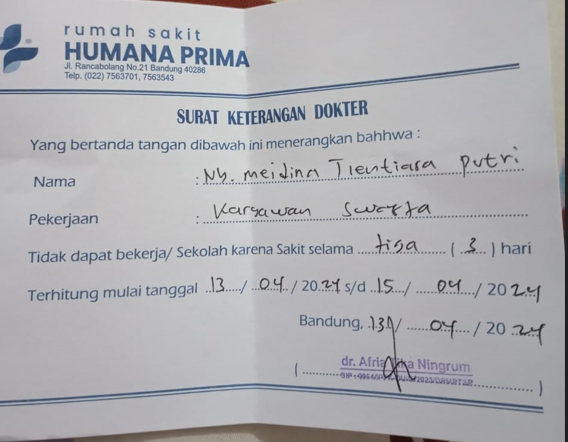 rumah sakit
HUMANA PRIMA
Jl. Rancabolang No.21 Bandung 40286
Telp. (022) 7563701, 7563543
SURAT KETERANGAN DOKTER
Yang bertanda tangan dibawah ini menerangkan bahhwa :
Nama : Ny. meidina Tientiara putri
Pekerjaan : Karyawan Swasta
Tidak dapat bekerja/ Sekolah karena Sakit selama tiga ( 3 ) hari
Terhitung mulai tanggal 13 / 04 / 2024 s/d 15 / 04 / 2024
Bandung, 13 / 04 / 2024
dr. Afria Ningrum
( )